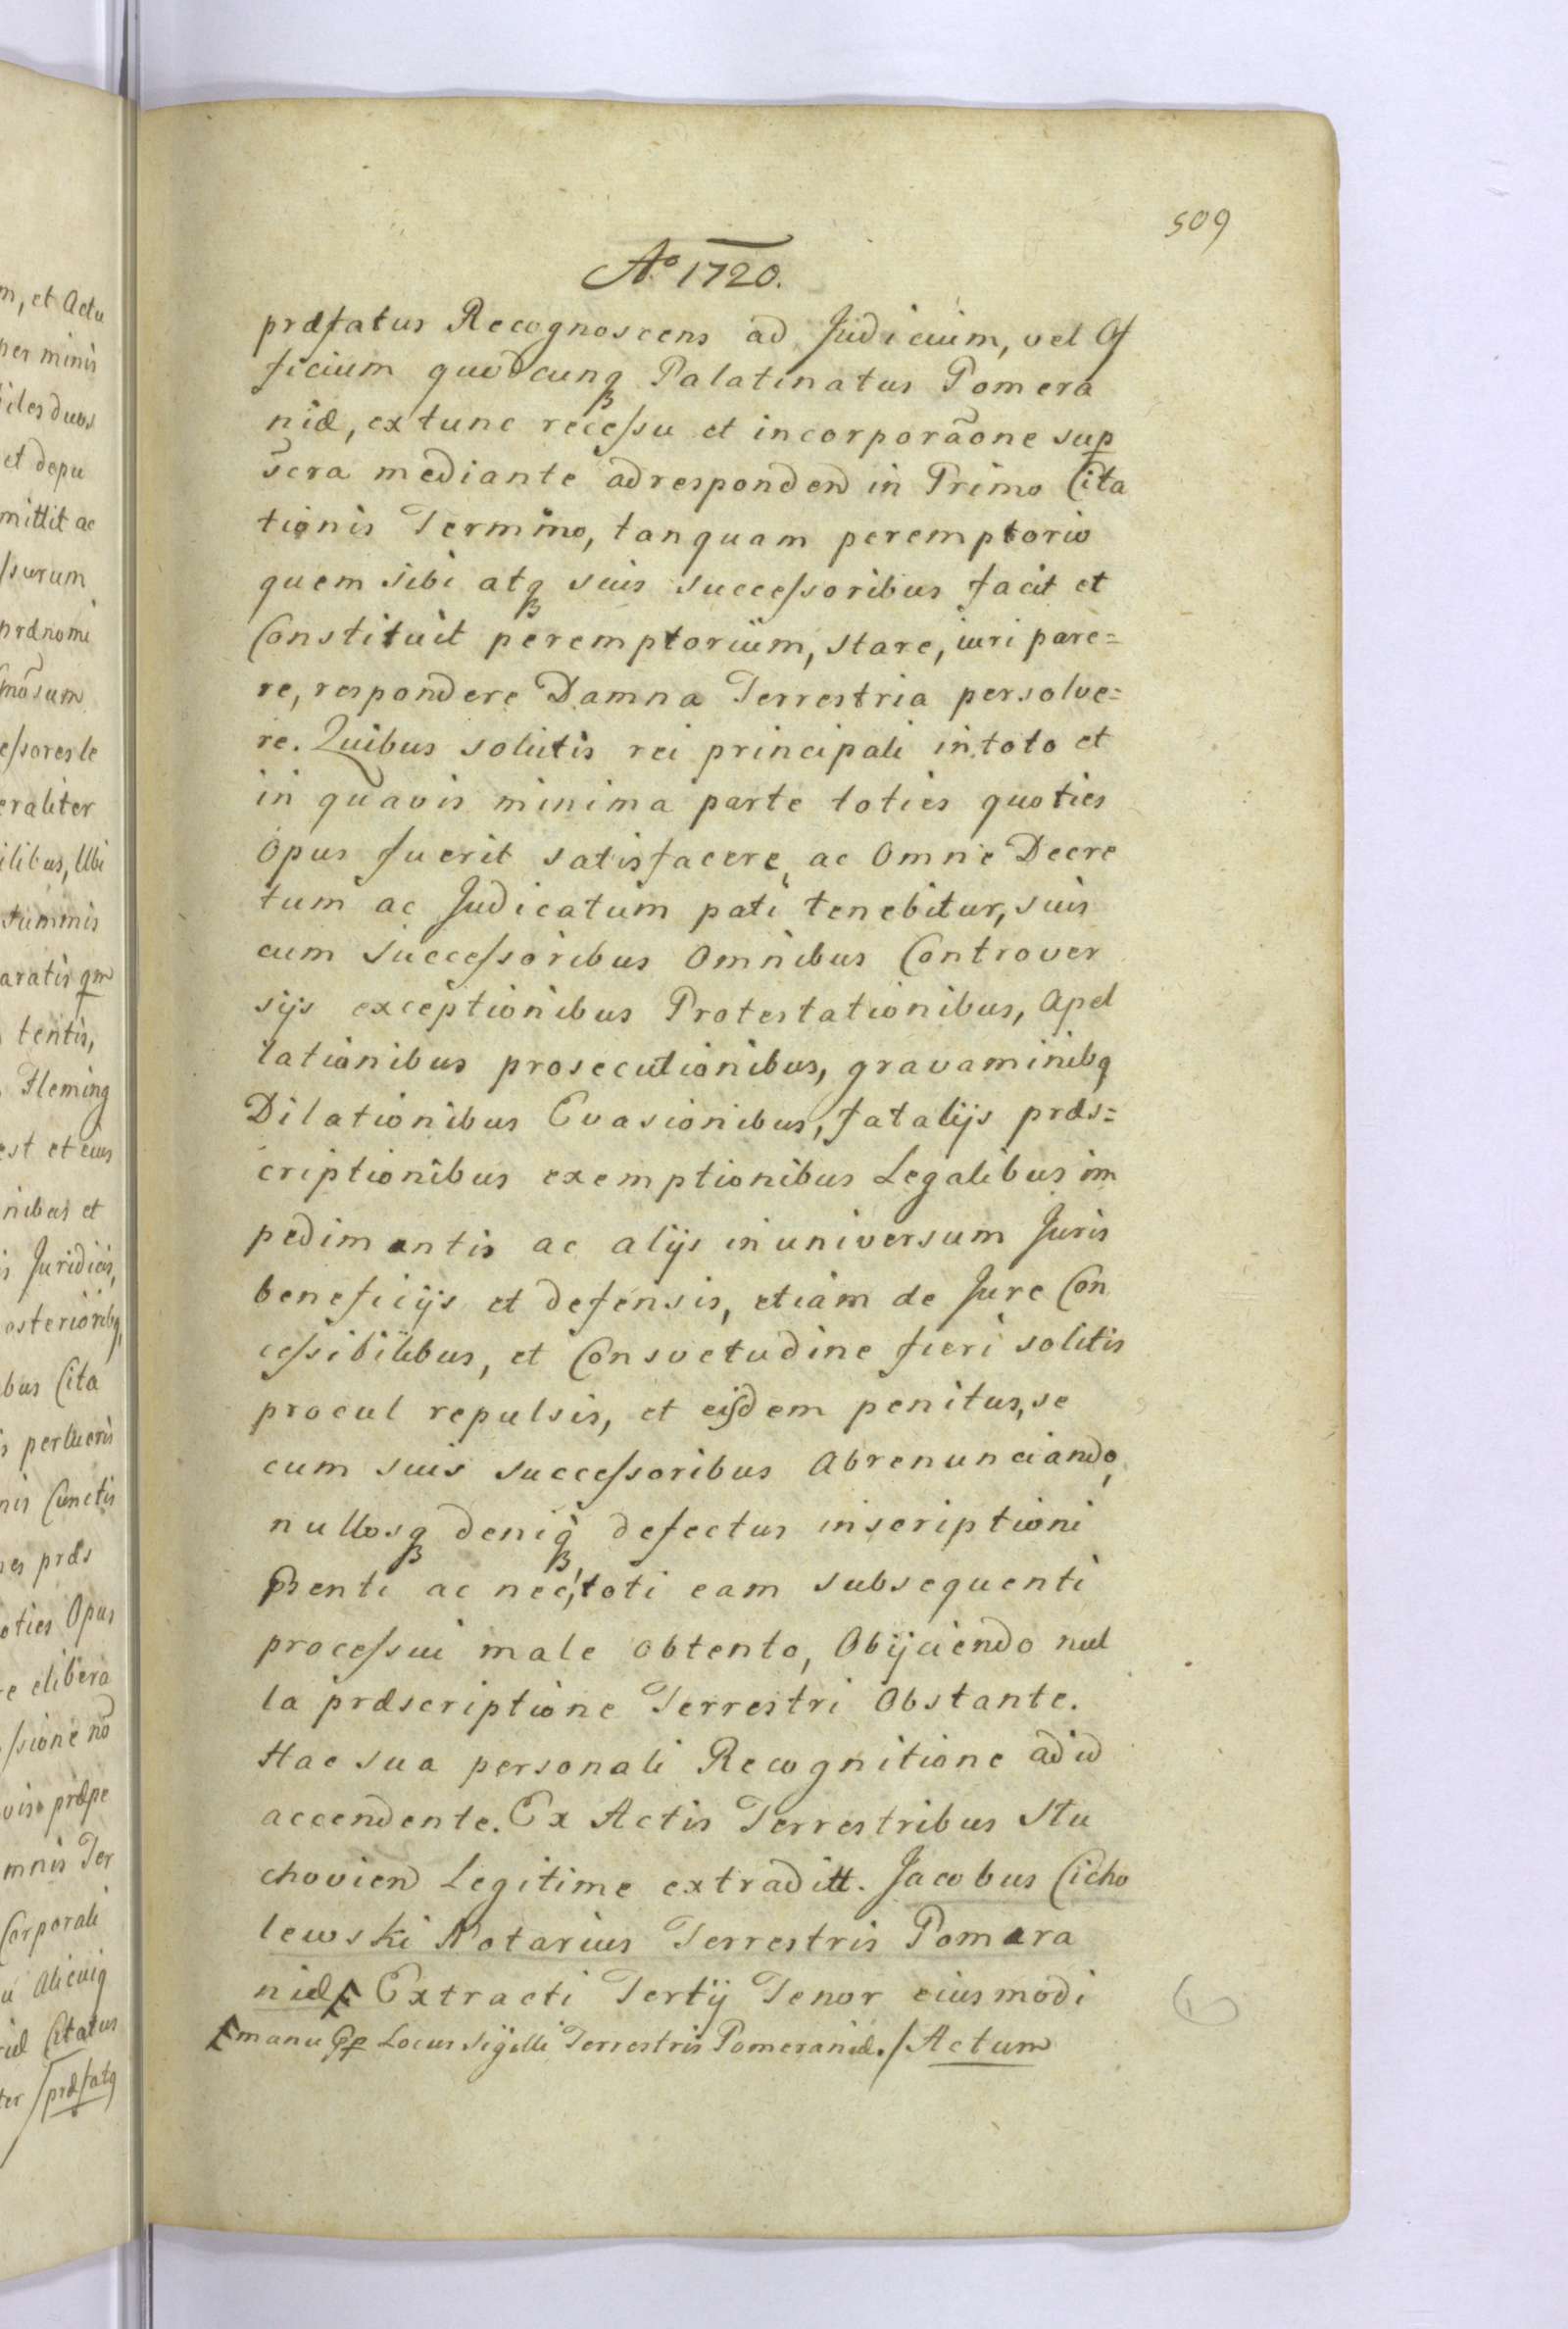 509
Aº 1720.
præfatus Recognoscens ad Judicium, vel Of
ficium quodcunq Palatinatus Pomera
niæ, extunc recessu et incorporãone sup
sera mediante adrespondend in Primo Cita
tionis Termino, tanquam peremptorio
quem sibi atq suis successoribus facit et
Constituit peremptorium, stare, iuri pare=
re, respondere Damna Terrestria persolve=
re. Quibus solutis rei principali in toto et
in quavis minima parte toties quoties
Opus fuerit satisfacere, ac Omne Decre
tum ac Judicatum pati tenebitur, suis
cum successoribus Omnibus Controver
sijs exceptionibus Protestationibus, Apel
lationibus prosecutionibus, gravaminibq
Dilationibus Evasionibus, fatalijs præs=
criptionibus exemptionibus Legalibus im
pedimentis ac alijs inuniversum Juris
beneficijs et defensis, etiam de Jure Con
cessibilibus, et Consvetudine fieri solitis
procul repulsis, et eisdem penitus, se
cum suis successoribus Abrenunciando,
nullosq deniq defectus inscriptioni
ac nec, toti eam subsequenti
processui male obtento, Obijciendo nul
la præscriptione Terrestri Obstante.
Hac sua personali Recognitione ad id
accendente. Ex Actis Terrestribus Stu
choviend Legitime extraditt. Jacobus Cicho
lewski Notarius Terrestris Pomera
niæ Extracti Tertij Tenor eiusmodi
manu Locus Sigilli Terrestris Pomeraniæ./ Actum
m, et Actu
per minis
iles duos
et depu
mittit ac
ssurum
prænomi
mãsum
essores le
eraliter
ilibus, Ubi
summis
aratis qm
tentis,
Fleming
est et eius
nibus et
s Juridicis,
osteriõribq,
bus Cita
s perlueris
nis Cunctis
es præs
oties Opus
re elibera
ssione nõ
viso præpe
mnis Ter
Corporali
u alicuiq
Citatus
ter /præfatq